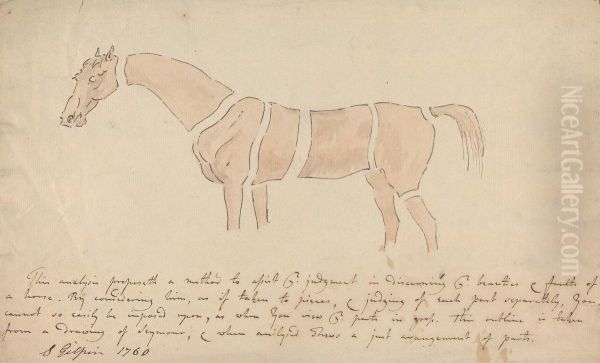 This analysis proposeth a method to assist yͤ judgment in discovering yͤ beauties & faults of
a horse. By considering him, as if taken to pieces, & judging of each part separately, You
cannot so easily be imposd upon, as when You view yͤ parts in gross. This outline is taken
from a drawing of Seymour; & when analysed shews a just arrangement of parts.
S Gilpin 1760
NiceArtGallery.com